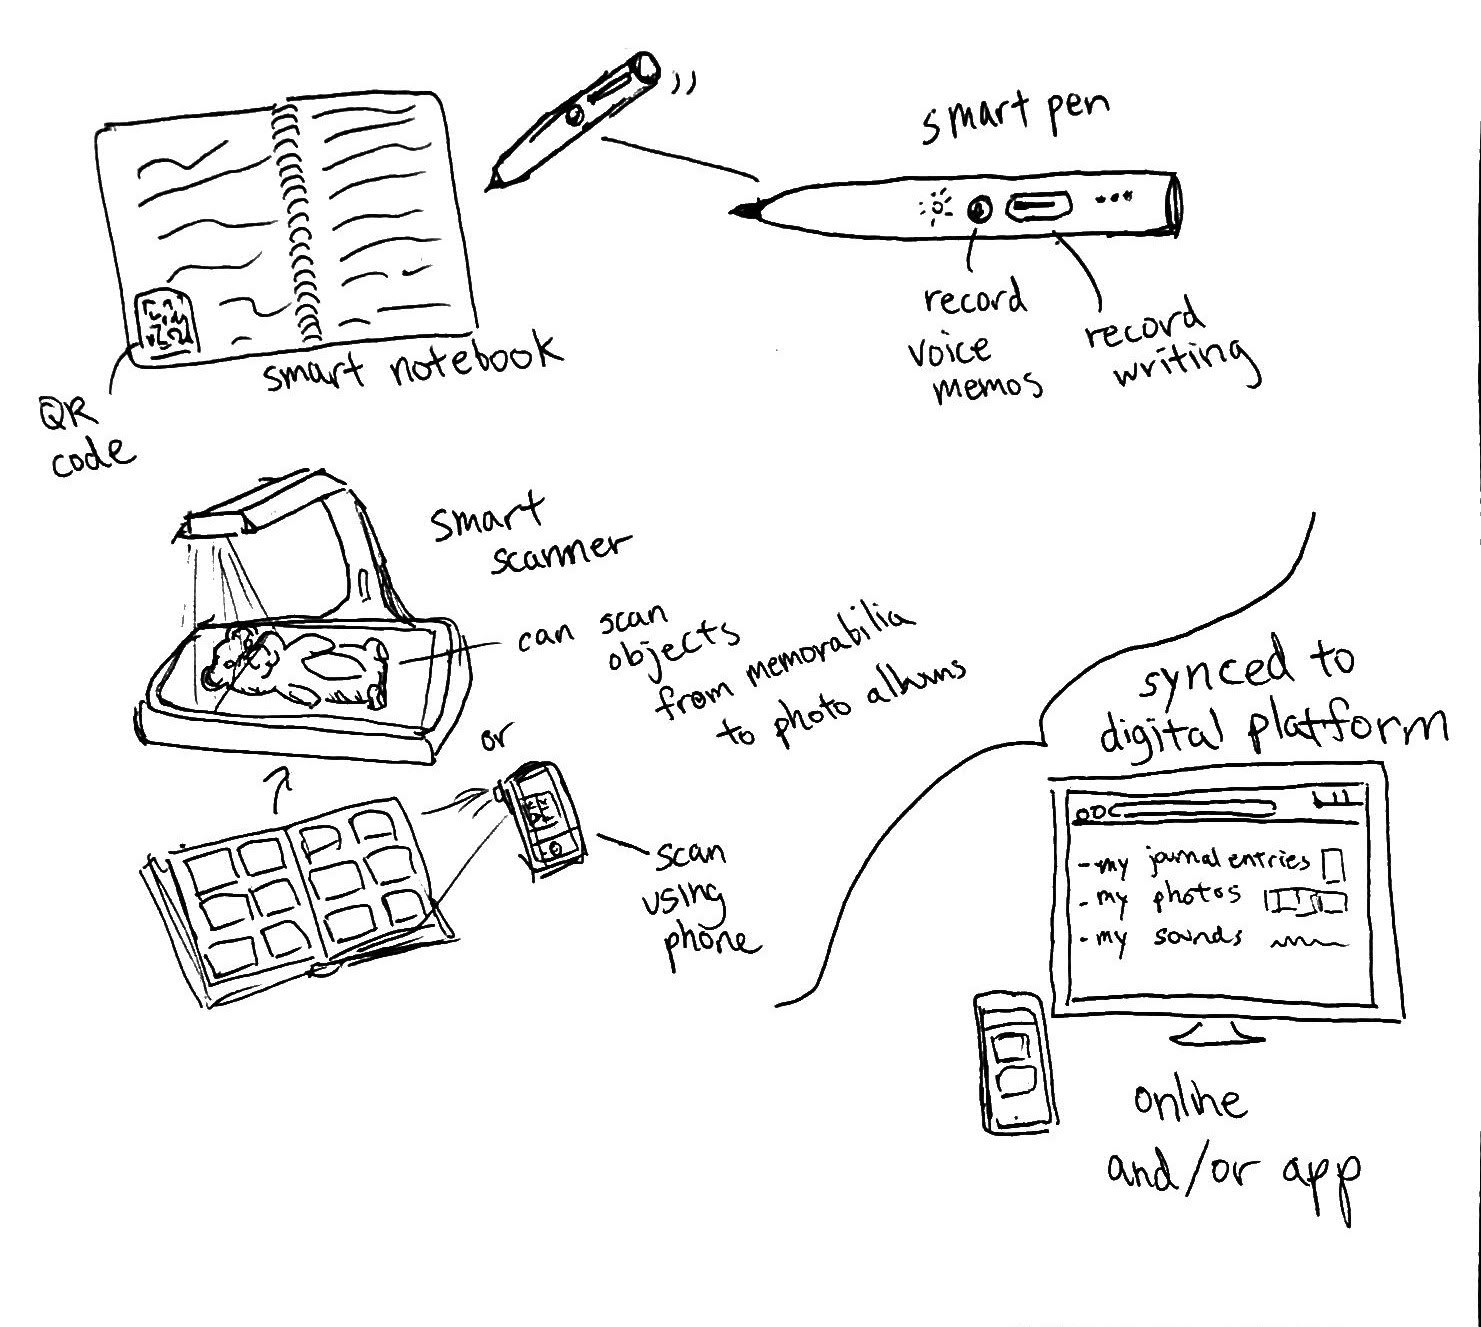 smart pen
record
voice
memos
record
writing
smart notebook
QR
code
smart
scanner
can scan
objects
from memorabilia
to photo albums
or
scan
using
phone
synced to
digital platform
- my journal entries
- my photos
- my sounds
online
and/or app